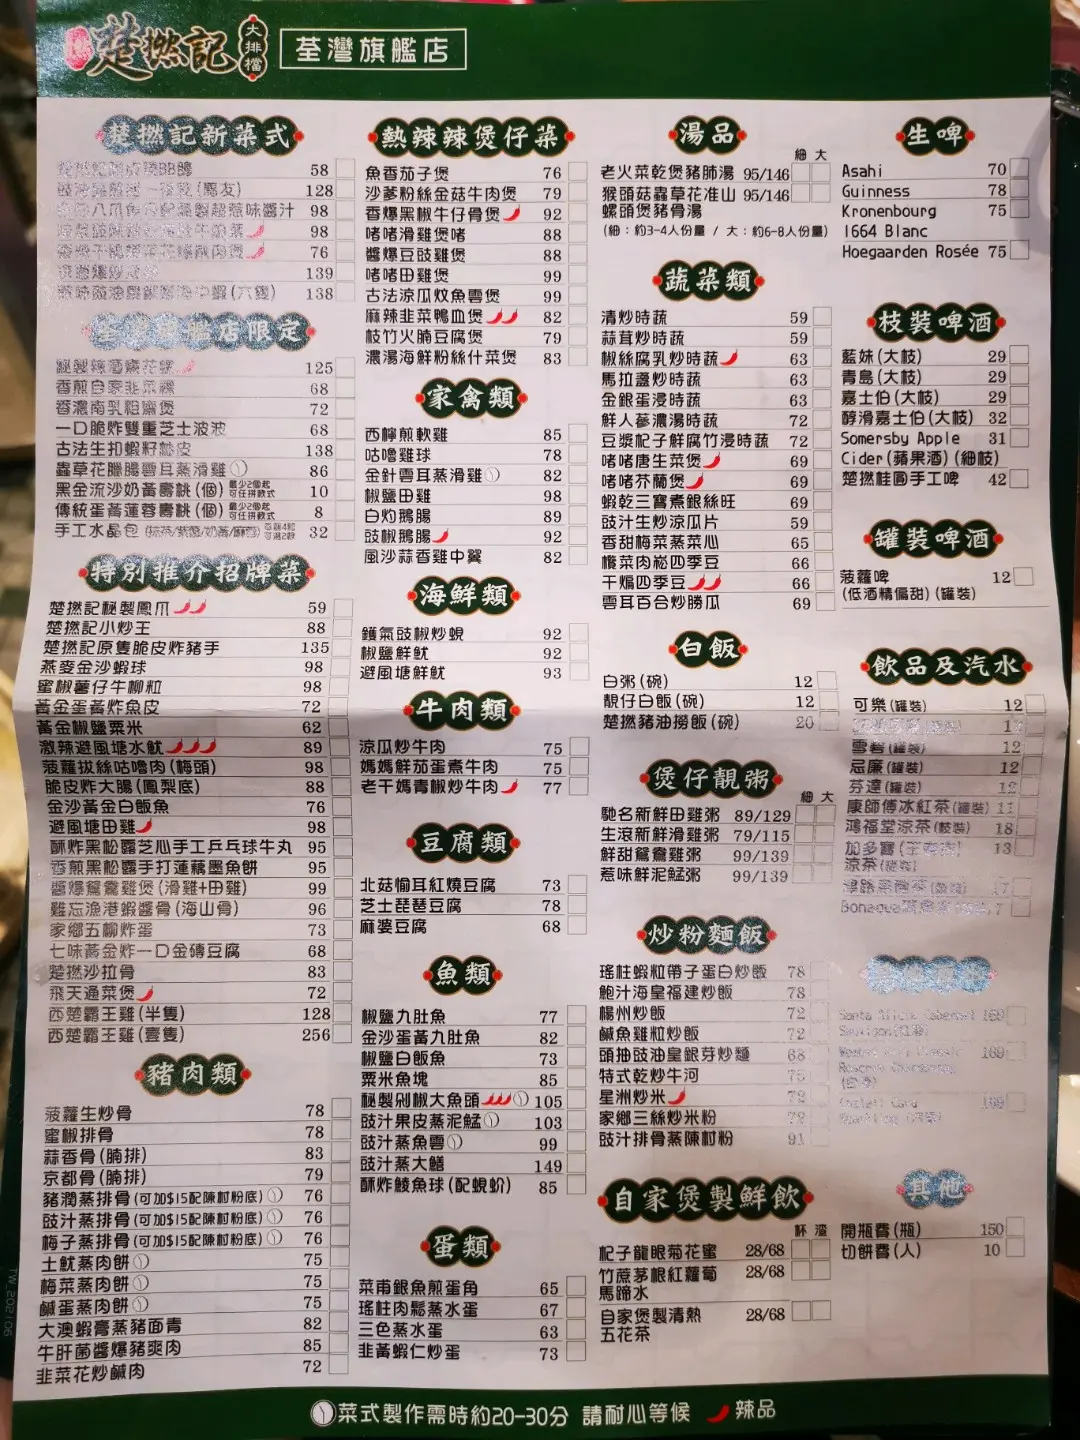 楚撚記 大排檔 荃灣旗艦店
楚撚記新菜式
58
128
98
98
76
139
138
荃灣旗艦店限定
125
香煎自家韭菜粿 68
香濃南乳粗齋煲 72
一口脆炸雙重芝士波波 68
古法生扣蝦籽柚皮 138
蟲草花臘腸雲耳蒸滑雞 86
黑金流沙奶黃壽桃(個) 最少2個起 可任拼款式 10
傳統蛋黃蓮蓉壽桃(個) 最少2個起 可任拼款式 8
手工水晶包 32
特別推介招牌菜
楚撚記秘製鳳爪 59
楚撚記小炒王 88
楚撚記原隻脆皮炸豬手 135
燕麥金沙蝦球 98
蜜椒薯仔牛柳粒 98
黃金蛋黃炸魚皮 72
黃金椒鹽粟米 62
激辣避風塘水魷 89
菠蘿拔絲咕嚕肉(梅頭) 98
脆皮炸大腸(鳳梨底) 88
金沙黃金白飯魚 76
避風塘田雞 98
酥炸黑松露芝心手工乒乓球牛丸 95
香煎黑松露手打蓮藕墨魚餅 95
醬爆鴛鴦雞煲(滑雞+田雞) 99
難忘漁港蝦醬骨(海山骨) 96
家鄉五柳炸蛋 73
七味黃金炸一口金磚豆腐 68
楚撚沙拉骨 83
飛天通菜煲 72
西楚霸王雞(半隻) 128
西楚霸王雞(壹隻) 256
豬肉類
菠蘿生炒骨 78
蜜椒排骨 78
蒜香骨(腩排) 83
京都骨(腩排) 79
豬潤蒸排骨(可加$15配陳村粉底) 76
豉汁蒸排骨(可加$15配陳村粉底) 76
梅子蒸排骨(可加$15配陳村粉底) 76
土魷蒸肉餅 75
梅菜蒸肉餅 75
鹹蛋蒸肉餅 75
大澳蝦膏蒸豬面青 82
牛肝菌醬爆豬爽肉 85
韭菜花炒鹹肉 72
熱辣辣煲仔菜
魚香茄子煲 76
沙爹粉絲金菇牛肉煲 79
香爆黑椒牛仔骨煲 92
啫啫滑雞煲啫 88
醬爆豆豉雞煲 88
啫啫田雞煲 99
古法涼瓜炆魚雲煲 99
麻辣韭菜鴨血煲 82
枝竹火腩豆腐煲 79
濃湯海鮮粉絲什菜煲 83
家禽類
西檸煎軟雞 85
咕嚕雞球 78
金針雲耳蒸滑雞 82
椒鹽田雞 98
白灼鵝腸 89
豉椒鵝腸 92
風沙蒜香雞中翼 82
海鮮類
鑊氣豉椒炒蜆 92
椒鹽鮮魷 92
避風塘鮮魷 93
牛肉類
涼瓜炒牛肉 75
媽媽鮮茄蛋煮牛肉 75
老干媽青椒炒牛肉 77
豆腐類
北菇愉耳紅燒豆腐 73
芝士琵琶豆腐 78
麻婆豆腐 68
魚類
椒鹽九肚魚 77
金沙蛋黃九肚魚 82
椒鹽白飯魚 73
粟米魚塊 85
秘製剁椒大魚頭 105
豉汁果皮蒸泥鯭 103
豉汁蒸魚雲 99
豉汁蒸大鱔 149
酥炸鯪魚球(配蜆蚧) 85
蛋類
菜甫銀魚煎蛋角 65
瑤柱肉鬆蒸水蛋 67
三色蒸水蛋 63
韭黃蝦仁炒蛋 73
湯品
細 大
老火菜乾煲豬肺湯 95/146
猴頭菇蟲草花准山 95/146
螺頭煲豬骨湯
(細:約3-4人份量 / 大:約6-8人份量)
蔬菜類
清炒時蔬 59
蒜茸炒時蔬 59
椒絲腐乳炒時蔬 63
馬拉盞炒時蔬 63
金銀蛋浸時蔬 63
鮮人蔘濃湯時蔬 72
豆漿杞子鮮腐竹浸時蔬 72
啫啫唐生菜煲 69
啫啫芥蘭煲 69
蝦乾三寶煮銀絲旺 69
豉汁生炒涼瓜片 59
香甜梅菜蒸菜心 65
欖菜肉崧四季豆 66
干煸四季豆 66
雲耳百合炒勝瓜 69
白飯
白粥(碗) 12
靚仔白飯(碗) 12
楚撚豬油撈飯(碗) 20
煲仔靚粥
細 大
馳名新鮮田雞粥 89/129
生滾新鮮滑雞粥 79/115
鮮甜鴛鴦雞粥 99/139
惹味鮮泥鯭粥 99/139
炒粉麵飯
瑤柱蝦粒帶子蛋白炒飯 78
鮑汁海皇福建炒飯 78
楊州炒飯 72
鹹魚雞粒炒飯 72
頭抽豉油皇銀芽炒麵 68
特式乾炒牛河 75
星洲炒米 72
家鄉三絲炒米粉 72
豉汁排骨蒸陳村粉 91
自家煲製鮮飲
杯 渣
杞子龍眼菊花蜜 28/68
竹蔗茅根紅蘿蔔 28/68
馬蹄水
自家煲製清熱 28/68
五花茶
生啤
Asahi 70
Guinness 78
Kronenbourg 75
1664 Blanc
Hoegaarden Rosée 75
枝裝啤酒
藍妹(大枝) 29
青島(大枝) 29
嘉士伯(大枝) 29
醇滑嘉士伯(大枝) 32
Somersby Apple 31
Cider(蘋果酒)(細枝)
楚撚桂圓手工啤 42
罐裝啤酒
菠蘿啤 12
(低酒精偏甜)(罐裝)
飲品及汽水
可樂(罐裝) 12
雪碧(罐裝) 12
忌廉(罐裝) 12
芬達(罐裝) 12
康師傅冰紅茶(罐裝) 11
鴻福堂涼茶(枝裝) 18
加多寶 13
涼茶(罐裝)
17
Bonaqua 7
其他
開瓶費(瓶) 150
切餅費(人) 10
菜式製作需時約20-30分 請耐心等候 辣品
TW_2021.06